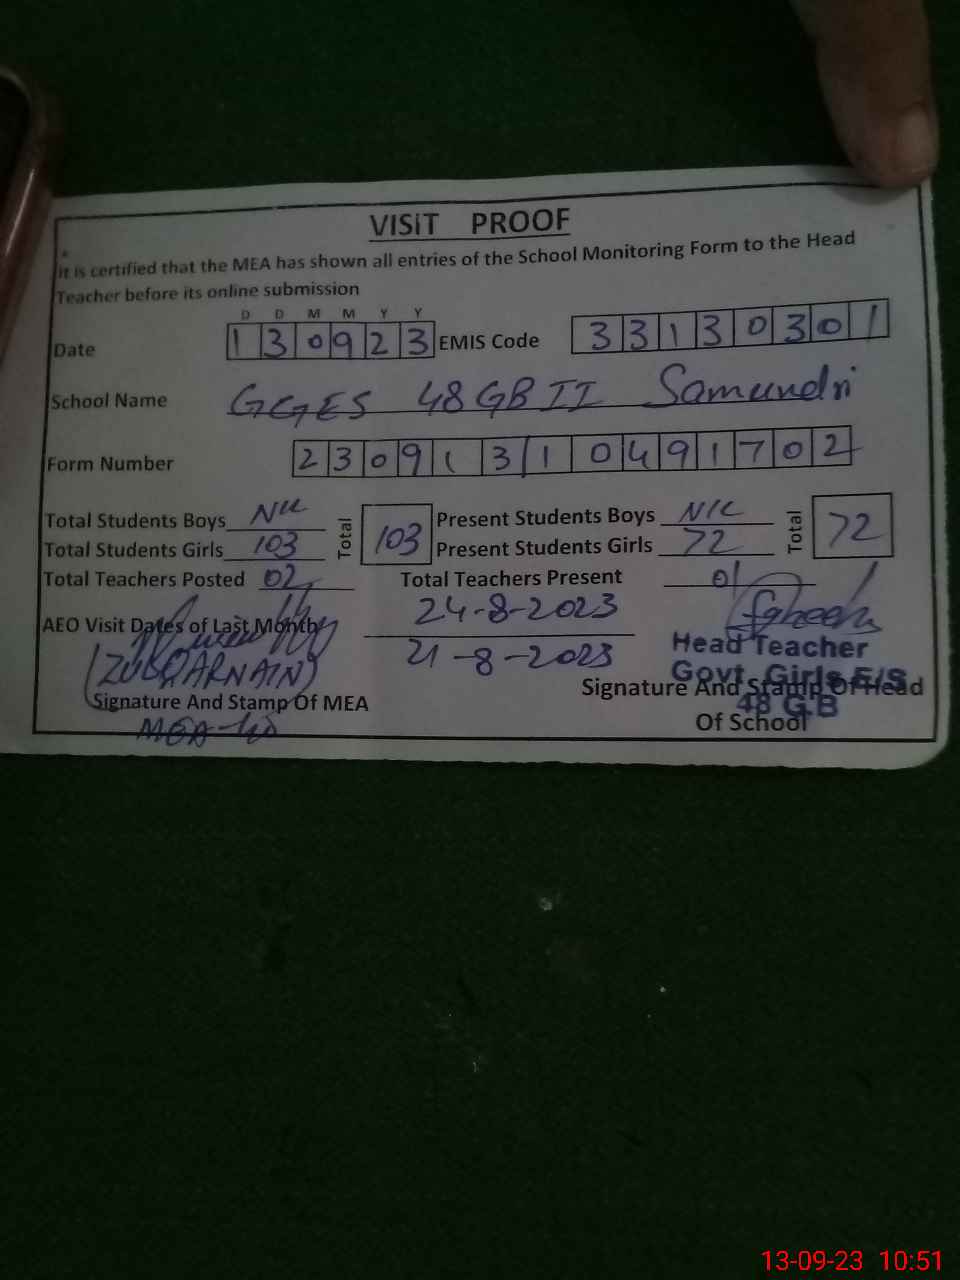 VISIT PROOF
it is certified that the MEA has shown all entries of the School Monitoring Form to the Head
Teacher before its online submission
D D M M Y Y
Date 130923 EMIS Code 33130301
School Name GGES 48 GB II Samundri
Form Number 23091310491702
Total Students Boys Nil Total 103 Present Students Boys Nil Total 72
Total Students Girls 103 Present Students Girls 72
Total Teachers Posted 02 Total Teachers Present 01
AEO Visit Dates of Last Month 24-8-2023
21-8-2023
(ZULQARNAIN)
Head Teacher
Govt. Girls E/S
48 G.B
Signature And Stamp Of MEA Signature And Stamp Of Head
Of School
MEA
13-09-23 10:51